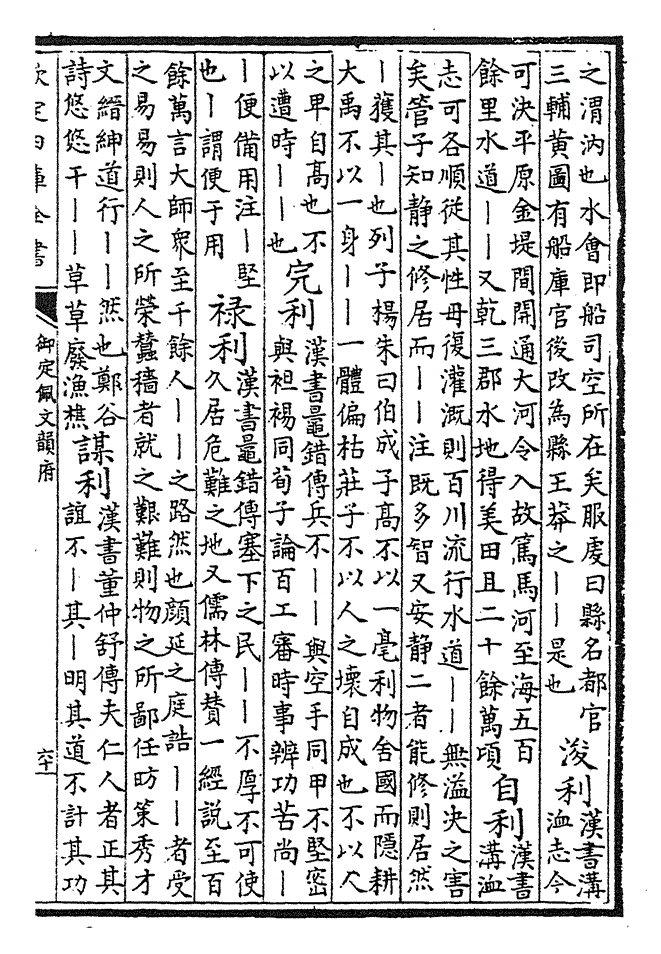 之渭汭也水會即船司空所在矣服虔曰縣名都官
三輔黃圖有船庫官後改為縣王莽之——是也
浚利
漢書溝
洫志今
可決平原金堤間開通大河令入故篤馬河至海五百
餘里水道——又乾三郡水地得美田且二十餘萬頃
自利
漢書
溝洫
志可各順從其性毋復灌溉則百川流行水道——無溢決之害
矣管子知靜之修居而——注既多智又安靜二者能修則居然
—獲其—也列子楊朱曰伯成子髙不以一毫利物舍國而隱耕
大禹不以一身——一體偏枯莊子不以人之壞自成也不以人
之卑自髙也不
以遭時——也
完利
漢書鼂錯傳兵不——與空手同甲不堅密
與袒裼同荀子論百工審時事辨功苦尚—
—便備用注—堅
也—謂便于用
祿利
漢書鼂錯傳塞下之民——不厚不可使
久居危難之地又儒林傳贊一經説至百
餘萬言大師衆至千餘人——之路然也顔延之庭誥——者受
之易易則人之所榮蠶穡者就之艱難則物之所鄙任昉策秀才
文縉紳道行——然也鄭谷
詩悠悠干——草草廢漁樵
謀利
漢書董仲舒傳夫仁人者正其
誼不—其—明其道不計其功
欽定四庫全書
御定佩文韻府
六十